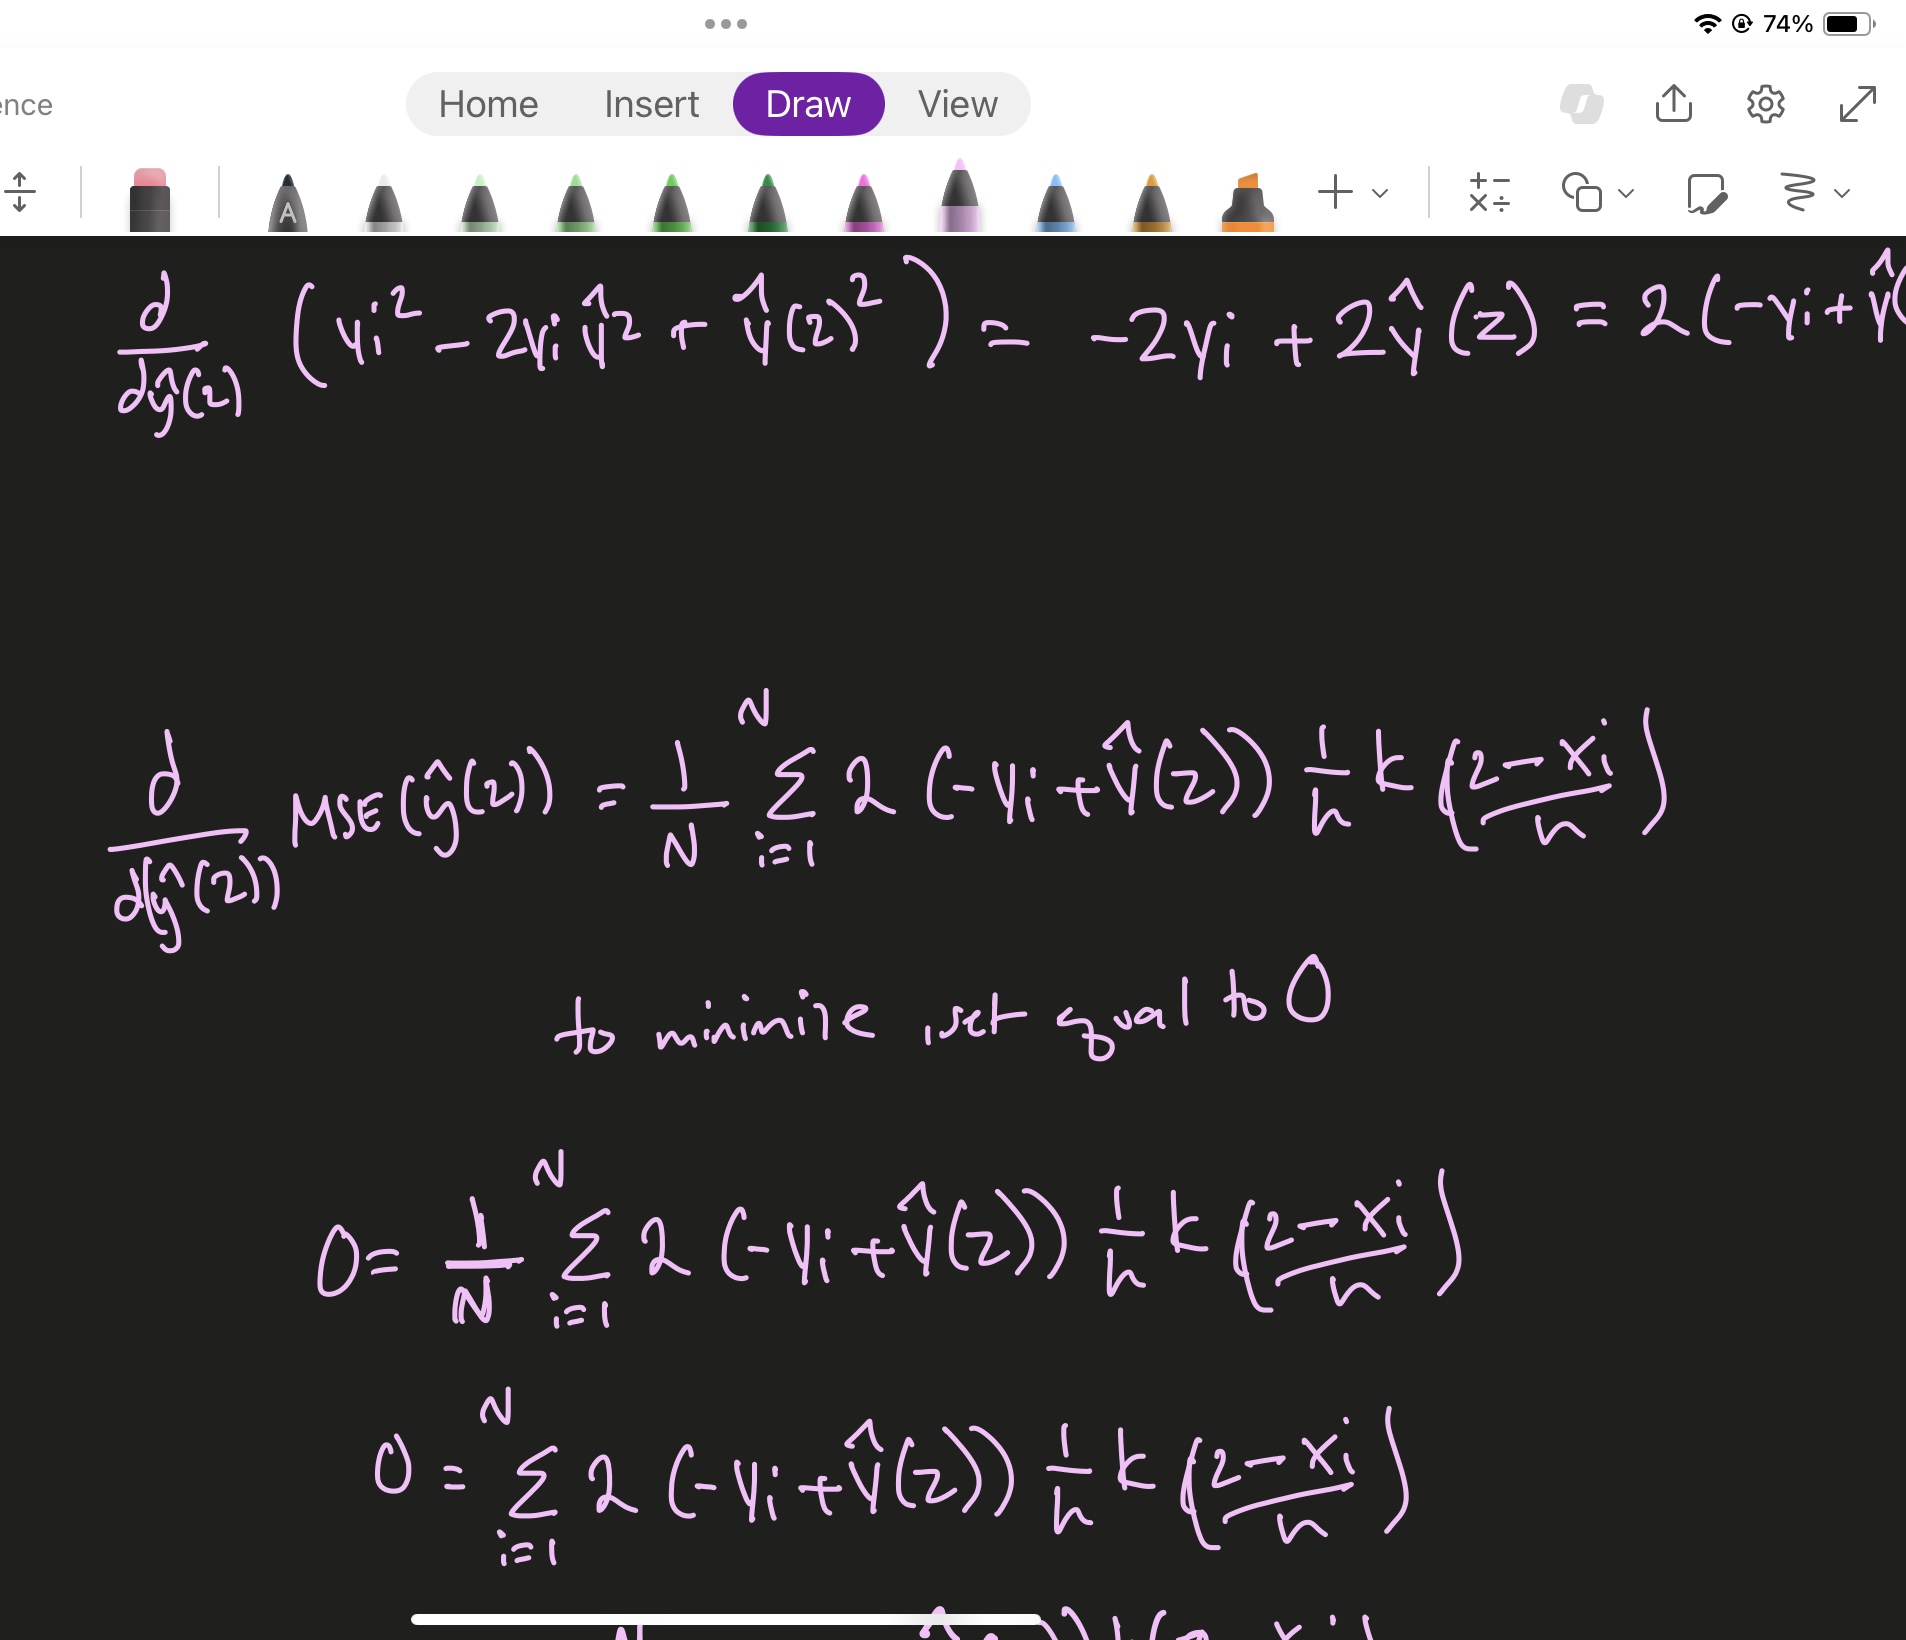 74%
ence Home Insert Draw View
A
d/dŷ(z) (yi² - 2yiŷ² + ŷ(z)²) = -2yi + 2ŷ(z) = 2(-yi + ŷ(
d/d(ŷ(z)) MSE(ŷ(z)) = 1/N N Σ i=1 2(-yi + ŷ(z)) 1/h k((z-xi)/h)
to minimize, set equal to 0
0 = 1/N N Σ i=1 2(-yi + ŷ(z)) 1/h k((z-xi)/h)
0 = N Σ i=1 2(-yi + ŷ(z)) 1/h k((z-xi)/h)